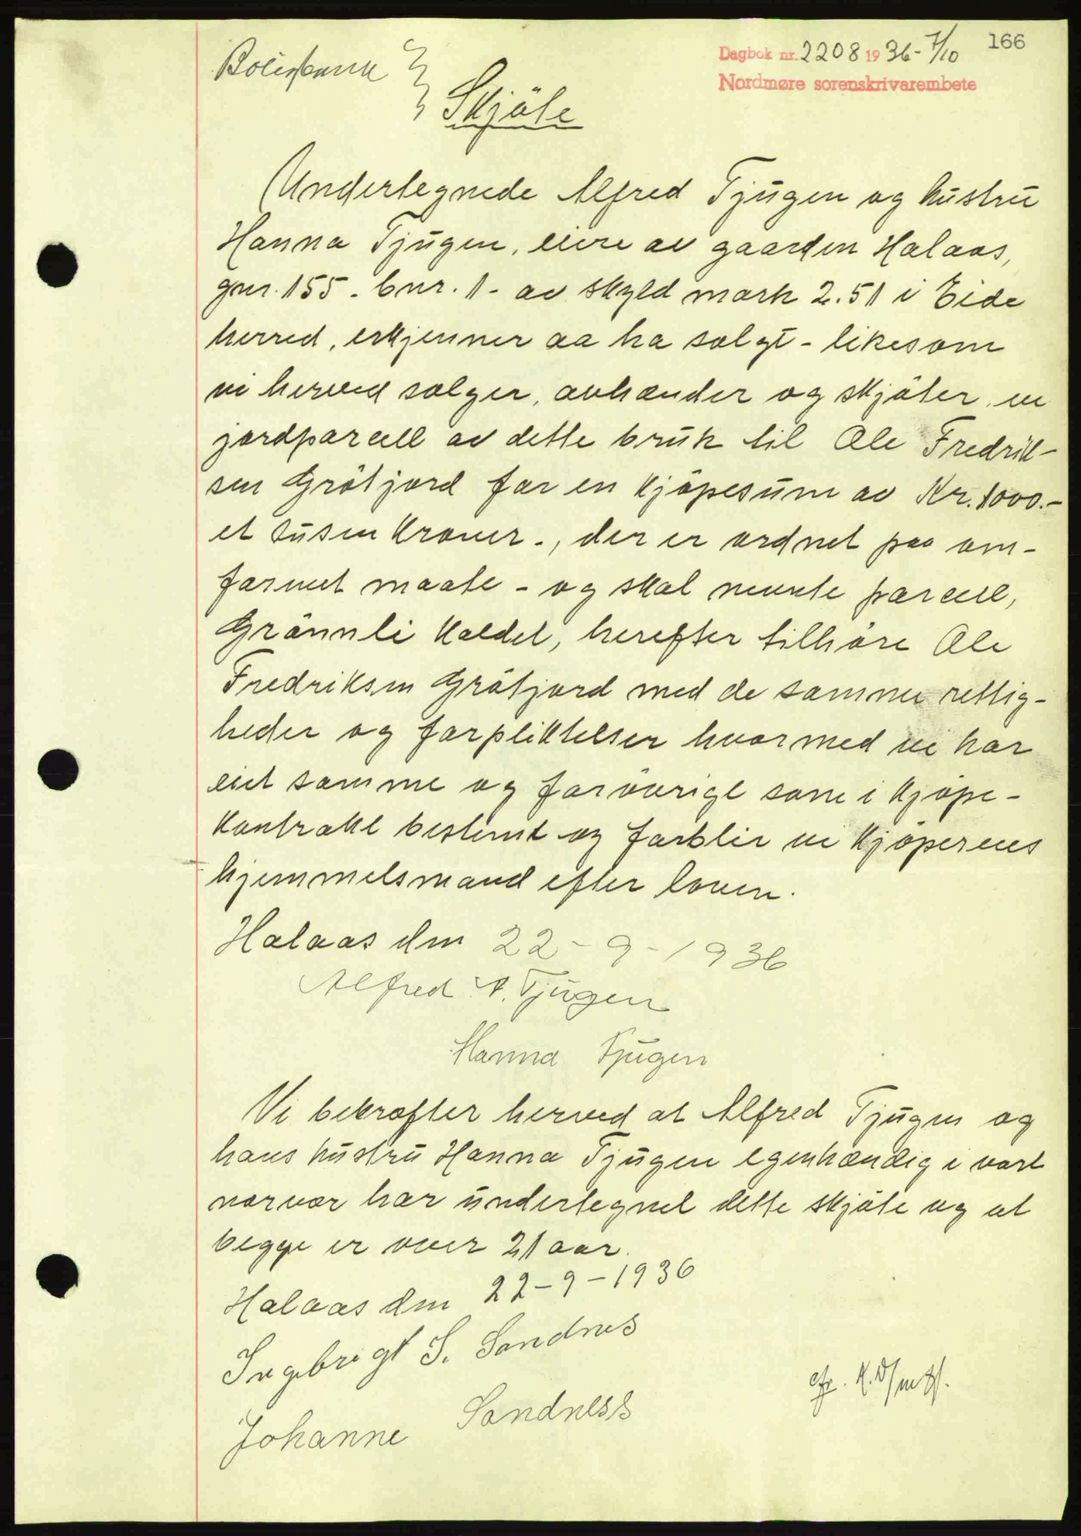 166
Dagbok nr. 2208 1936 - 7/10
Nordmøre sorenskrivarembete
Skjöte
Undertegnede Alfred Tjugen og hustru
Hanna Tjugen, eiere av gaarden Halaas,
gnr. 155 - bnr. 1 - av skyld mark 2.51 i Eide
herred, erkjenner aa ha solgt - likesom
vi herved sælger, avhænder og skjöter, en
jordparcell av dette bruk til Ole Fredrik-
sen Gröfjord for en kjöpesum av Kr. 1000.-
et tusen kroner -, der er ordnet paa om-
forenet maate - og skal nevnte parcell,
Grönnli kaldet, herefter tilhöre Ole
Fredriksen Gröfjord med de samme rettig-
heder og forpliktelser hvormed vi har
eiet samme og forövrigt som i kjöpe-
kontrakt bestemt og forblir vi kjöperenes
hjemmelsmand efter loven.
Halaas den 22-9-1936
Alfred A. Tjugen
Hanna Tjugen
Vi bekræfter herved at Alfred Tjugen og
hans hustru Hanna Tjugen egenhændig i vort
nærvær har undertegnet dette skjöte og at
begge er over 21 aar.
Halaas den 22-9-1936
Ingebrigt S. Sandnes
Johanne Sandness